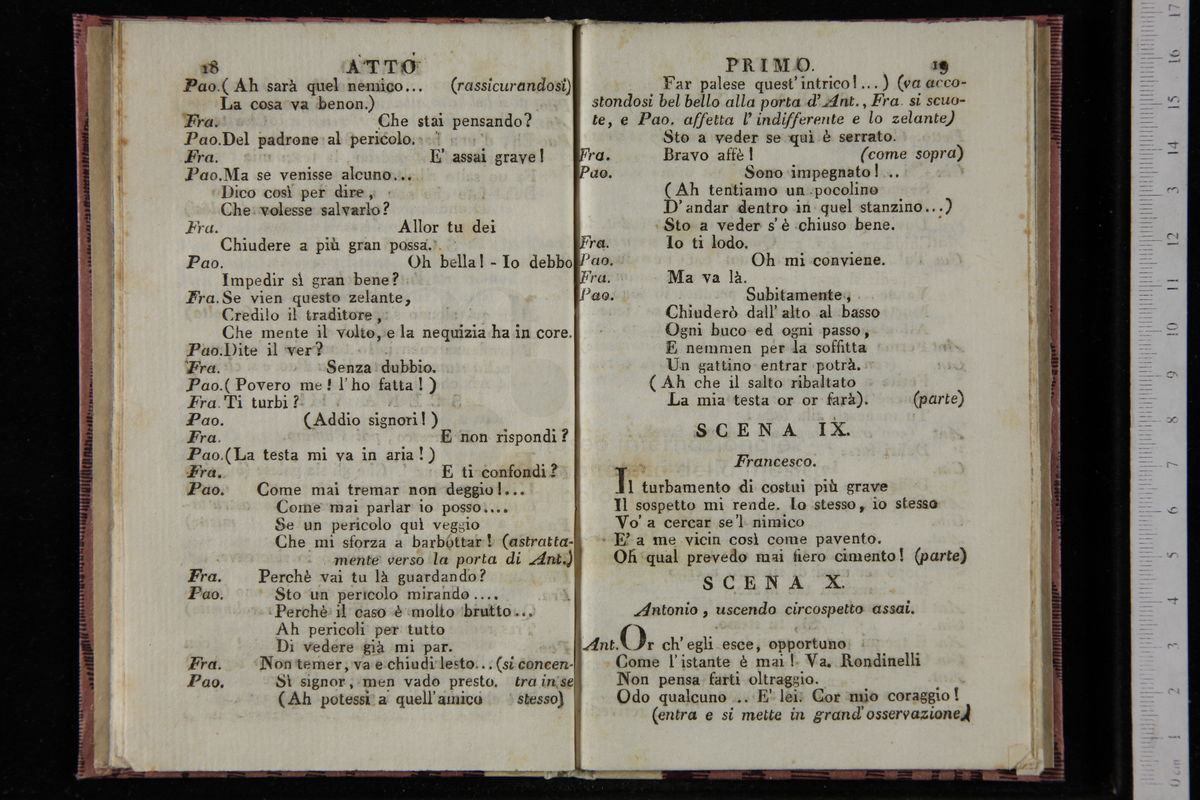 18 ATTO
Pao. ( Ah sarà quel nemico... (rassicurandosi)
La cosa va benon.)
Fra. Che stai pensando?
Pao. Del padrone al pericolo.
Fra. E' assai grave!
Pao. Ma se venisse alcuno...
Dico così per dire,
Che volesse salvarlo?
Fra. Allor tu dei
Chiudere a più gran possa.
Pao. Oh bella! - Io debbo
Impedir sì gran bene?
Fra. Se vien questo zelante,
Credilo il traditore,
Che mente il volto, e la nequizia ha in core.
Pao. Dite il ver?
Fra. Senza dubbio.
Pao. ( Povero me! l'ho fatta! )
Fra. Ti turbi?
Pao. (Addio signori!)
Fra. E non rispondi?
Pao. (La testa mi va in aria!)
Fra. E ti confondi?
Pao. Come mai tremar non deggio!...
Come mai parlar io posso....
Se un pericolo quì veggio
Che mi sforza a barbottar! (astratta-
mente verso la porta di Ant.)
Fra. Perchè vai tu là guardando?
Pao. Sto un pericolo mirando....
Perchè il caso è molto brutto...
Ah pericoli per tutto
Di vedere già mi par.
Fra. Non temer, va e chiudi lesto... (si concen-
Pao. Sì signor, men vado presto. tra in se
(Ah potessi a quell'amico stesso)
PRIMO. 19
Far palese quest'intrico!...) (va acco-
stondosi bel bello alla porta d'Ant., Fra. si scuo-
te, e Pao. affetta l'indifferente e lo zelante)
Sto a veder se quì è serrato.
Fra. Bravo affè! (come sopra)
Pao. Sono impegnato! ..
(Ah tentiamo un pocolino
D'andar dentro in quel stanzino...)
Sto a veder s'è chiuso bene.
Fra. Io ti lodo.
Pao. Oh mi conviene.
Fra. Ma va là.
Pao. Subitamente,
Chiuderò dall'alto al basso
Ogni buco ed ogni passo,
E nemmen per la soffitta
Un gattino entrar potrà.
(Ah che il salto ribaltato
La mia testa or or farà). (parte)
SCENA IX.
Francesco.
Il turbamento di costui più grave
Il sospetto mi rende. Io stesso, io stesso
Vo' a cercar se'l nimico
E' a me vicin così come pavento.
Oh qual prevedo mai fiero cimento! (parte)
SCENA X.
Antonio, uscendo circospetto assai.
Ant. Or ch'egli esce, opportuno
Come l'istante è mai! Va. Rondinelli
Non pensa farti oltraggio.
Odo qualcuno .. E' lei. Cor mio coraggio!
(entra e si mette in grand'osservazione)
0 cm 1 2 3 4 5 6 7 8 9 10 11 12 13 14 15 16 17